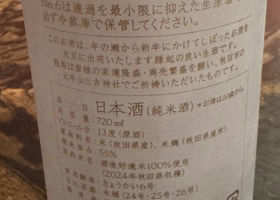 No.6は濾過を最小限に抑えた生原酒
必ず冷蔵庫で保管してください。
このお酒は、年の瀬から新年にかけてしぼったお酒を
元旦に出荷いたします縁起の良い生酒です。
皆様の家運隆盛・商売繁盛を願い、秋田市の
太平山三吉神社でご祈祷いただいたものです。
品目 日本酒(純米酒) *お酒は20歳から。
容量 720ml
アルコール分 13度(原酒)
米(秋田県産)、米麹(秋田県産米)
精米歩合 55%
酒造好適米100%使用
(2024年秋田県収穫)
きょうかい6号
木桶(24号・25号・26号)